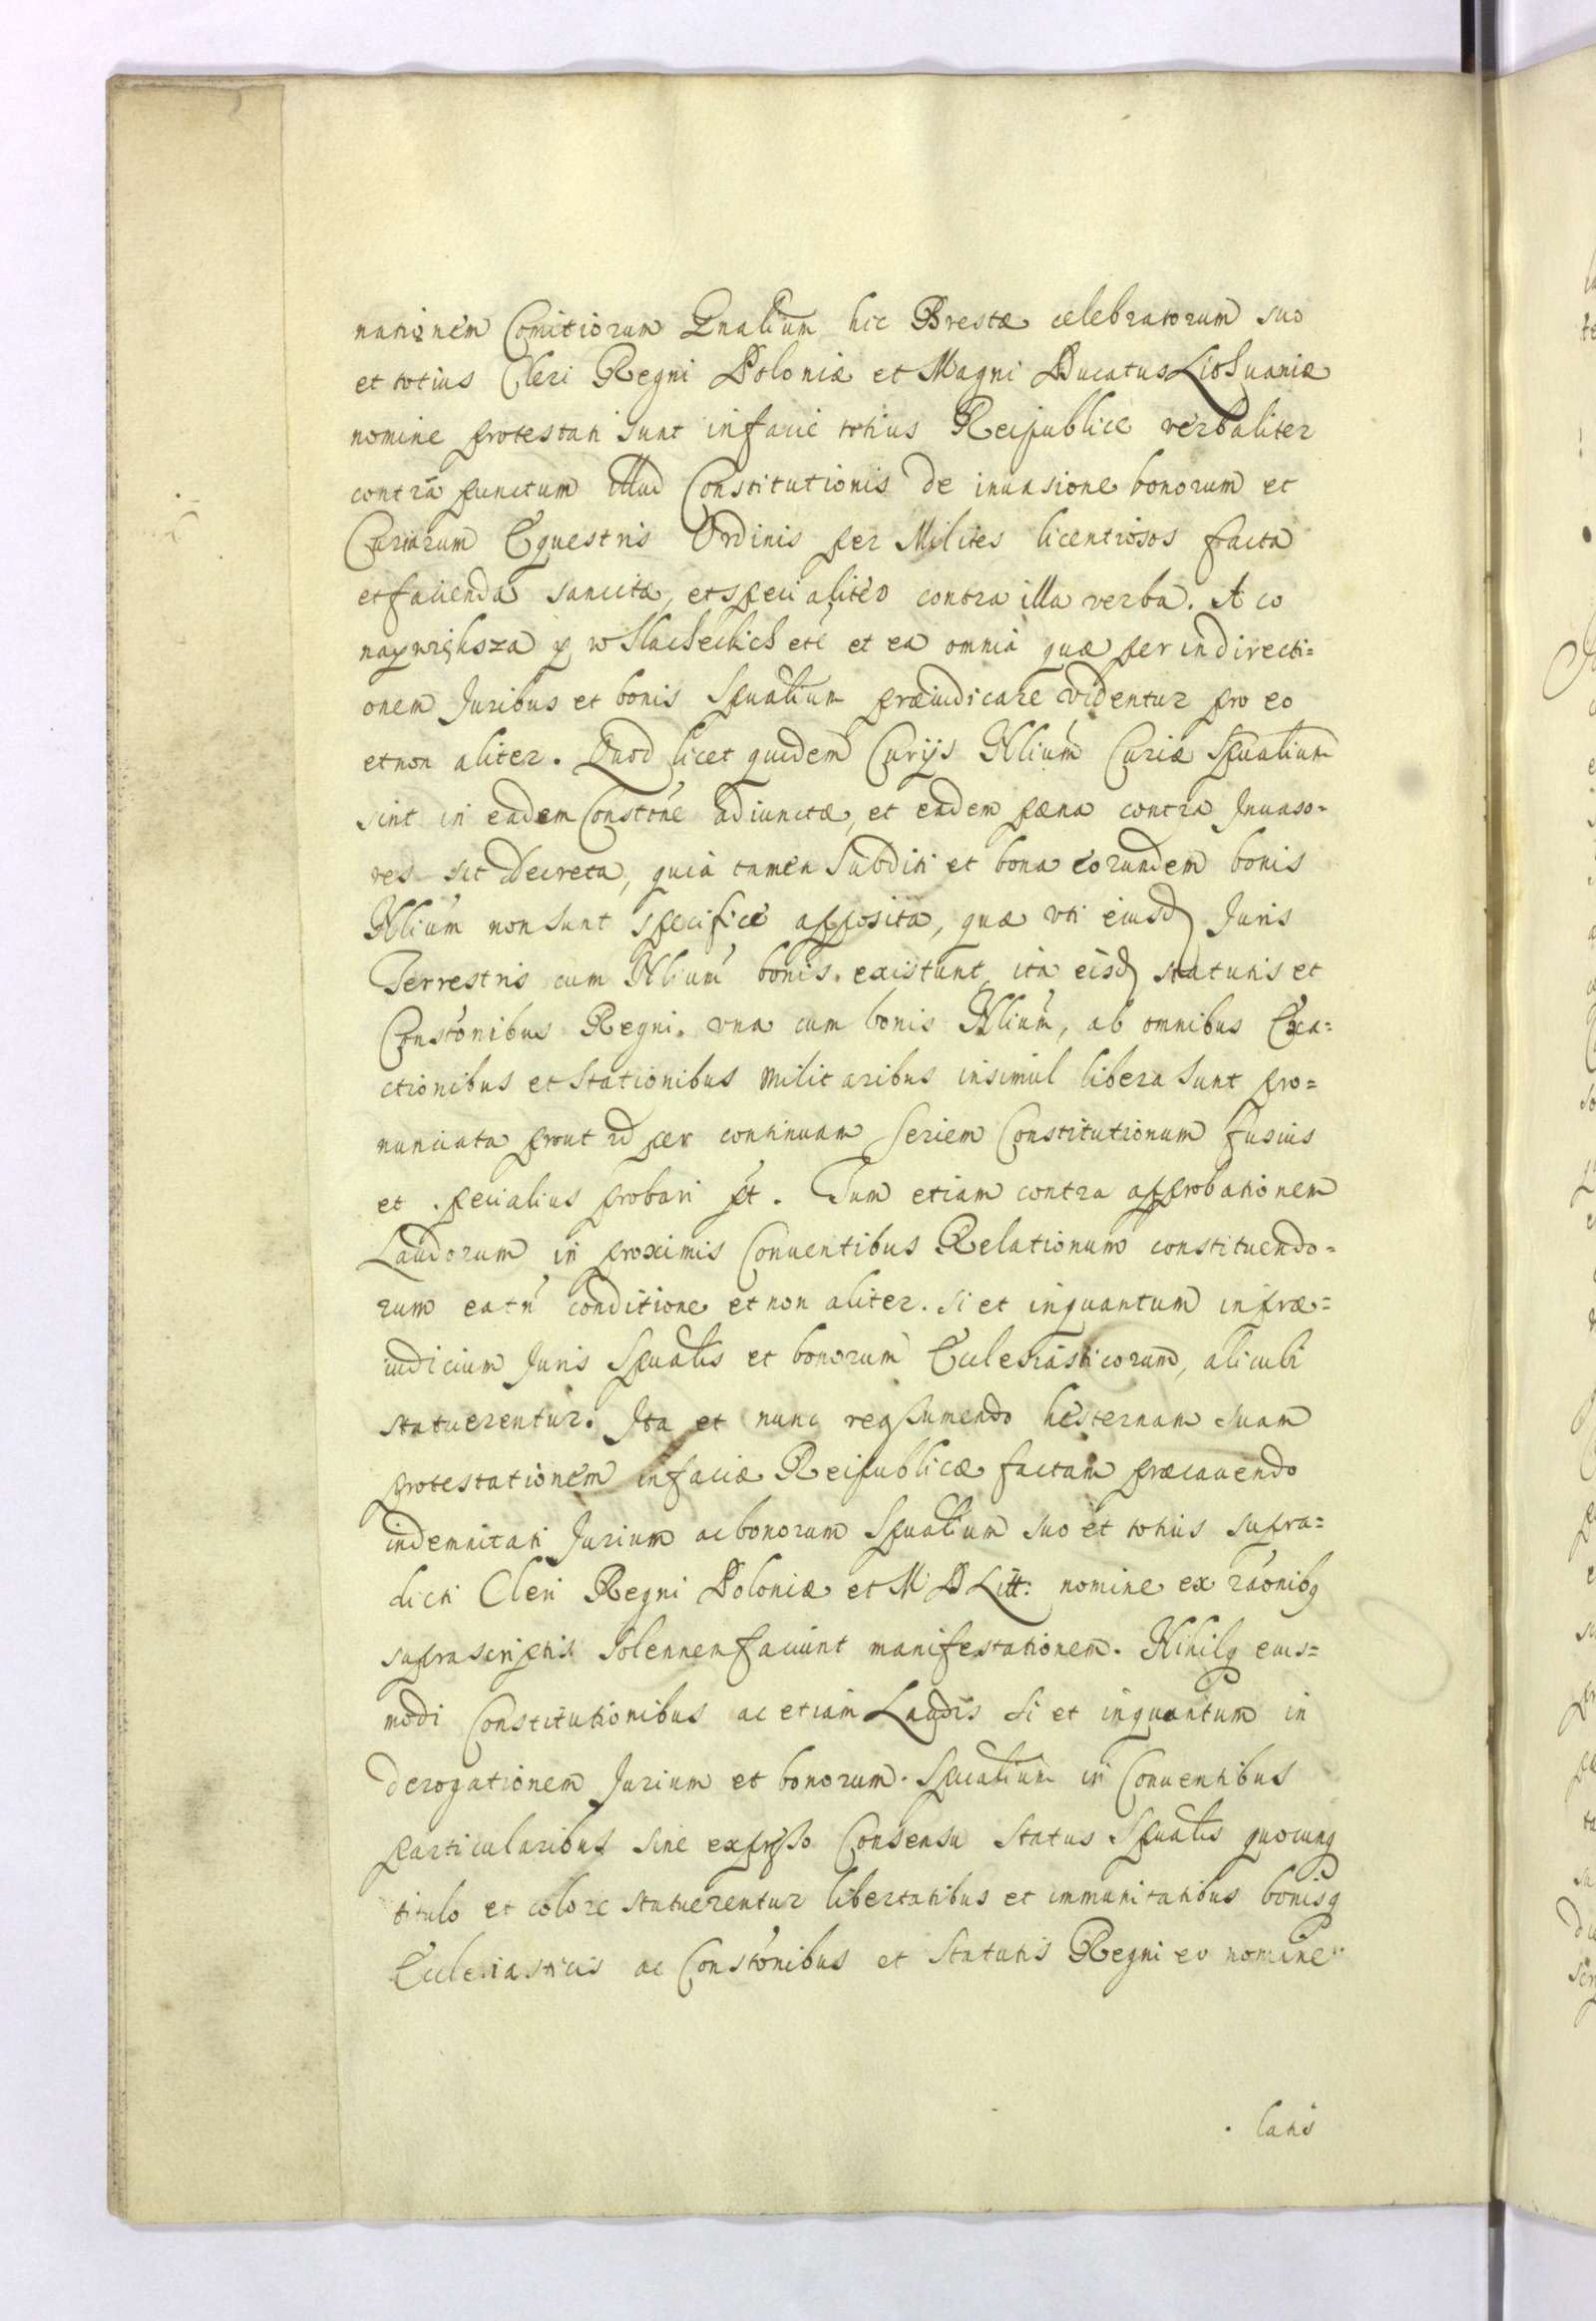 nationem Comitiorum Gnalium hic Brestæ celebratorum suo
et totius Cleri Regni Poloniæ et Magni Ducatus Lithuaniæ
nomine protestati sunt in facie totius Reipublicæ verbaliter
contra punctum illud Constitutionis de inuasione bonorum et
Curiarum Equestris Ordinis per Milites licentiosos facta
et facienda sancitæ, et specialiter contra illa verba. A co
naywiększa w Slacheckich etc et ea omnia quæ per indirecti=
onem Juribus et bonis Spualium præiudicare videntur pro eo
et non aliter. Quod licet quidem Curijs Nlium Curiæ Spualium
sint in eadem Constone adiunctæ, et eadem pæna contra Inuaso=
res sit decreta, quia tamen Subditi et bona eorundem bonis
Nlium non sunt specifice apposita, quæ vti eiusd Juris
Terrestris cum Nlium bonis existunt, ita eisd statutis et
Constonibus Regni. vna cum bonis Nlium, ab omnibus Exa=
ctionibus et Stationibus Militaribus insimul libera sunt pro=
nunciata prout id per continuam seriem Constitutionum fusius
et specialius probari pt. Tum etiam contra approbationem
Laudorum in proximis Conuentibus Relationum constituendo=
rum ea tn conditione et non aliter. Si et inquantum in præ=
iudicium Juris Spualis et bonorum Ecclesiasticorum, alicubi
statuerentur. Ita et nunc reassumendo hesternam suam
protestationem in facie Reipublicæ factam præcauendo
indemnitati Jurium ac bonorum Spualium suo et totius supra=
dicti Cleri Regni Poloniæ et M D Litt: nomine ex raonibq
suprascriptis Solennem faciunt manifestationem. Nihilq eius=
modi Constitutionibus ac etiam Laudis Si et inquantum in
derogationem Jurium et bonorum Spualium in Conuentibus
particularibus sine expresso Consensu Status Spualis quocunq
titulo et colore statuerentur libertatibus et immunitatibus bonisq
Ecclesiasticis ac Constonibus et Statutis Regni eo nomine
latis